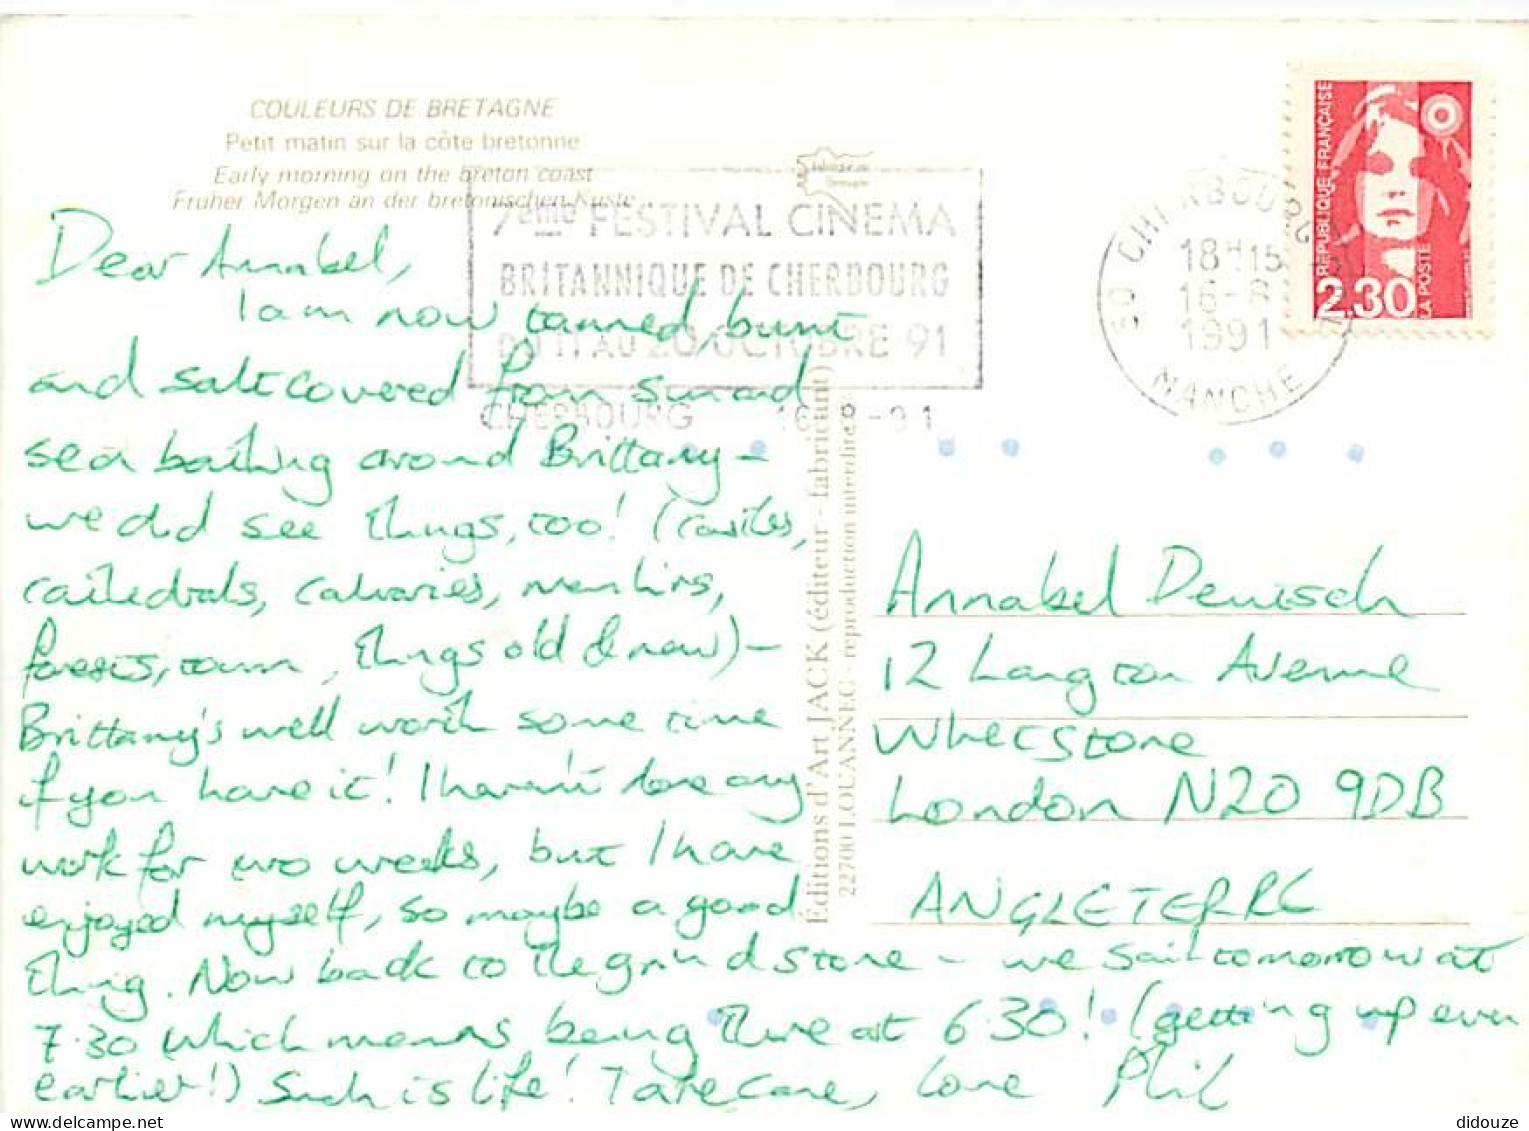 COULEURS DE BRETAGNE
Petit matin sur la côte bretonne
Early morning on the breton coast
Fruher Morgen an der bretonischen Kuste
7ème FESTIVAL CINEMA
BRITANNIQUE DE CHERBOURG
DU 11 AU 20 OCTOBRE 91
CHERBOURG 16-8-91
50 CHERBOURG
18H15
16-8
1991
MANCHE
REPUBLIQUE FRANÇAISE
2,30
LA POSTE
Dear Annabel,
I am now tanned, burnt
and salt covered from sun and
sea bathing around Brittany -
we did see things, too! (castles,
cathedrals, calvaries, menhirs,
forests, town, things old & new) -
Brittany's well worth some time
if you have it! I haven't done any
work for two weeks, but I have
enjoyed myself, so maybe a good
thing. Now back to the grindstone - we sail tomorrow at
7.30 which means being there at 6.30! (getting up even
earlier!) Such is life! Take care, love Phil
Éditions d'Art JACK (éditeur - fabricant)
22700 LOUANNEC - reproduction interdite
Annabel Deutsch
12 Langton Avenue
Whetstone
London N20 9DB
ANGLETERRE
didouze